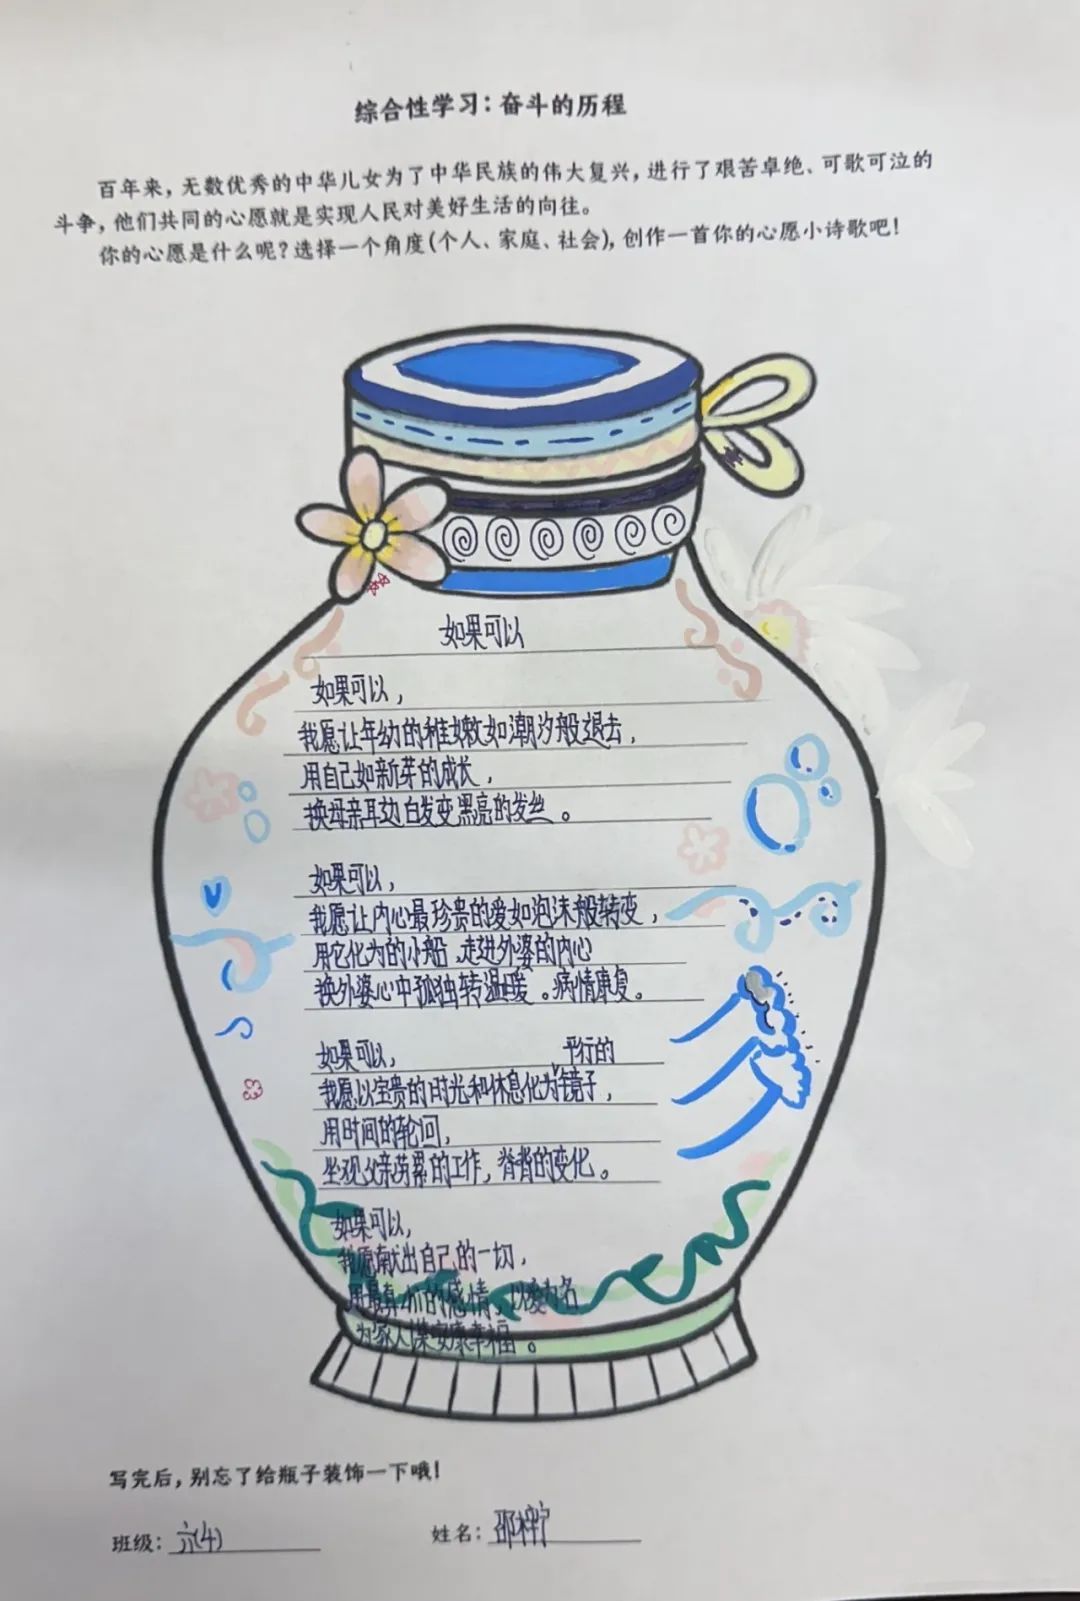 综合性学习：奋斗的历程
百年来，无数优秀的中华儿女为了中华民族的伟大复兴，进行了艰苦卓绝、可歌可泣的
斗争，他们共同的心愿就是实现人民对美好生活的向往。
你的心愿是什么呢？选择一个角度（个人、家庭、社会），创作一首你的心愿小诗歌吧！
如果可以
如果可以，
我愿让年幼的稚嫩如潮汐般退去，
用自己如新芽的成长，
换母亲耳边白发变黑亮的发丝。
如果可以，
我愿让内心最珍贵的爱如泡沫般转变，
用它化为的小船，走进外婆的内心
换外婆心中孤独转温暖。病情康复。
如果可以，
平行的
我愿以宝贵的时光和休息化为镜子，
用时间的轮回，
坐观父亲劳累的工作，脊背的变化。
如果可以，
我愿献出自己的一切，
用最真的感情，以爱为名
为家人保安康幸福。
写完后，别忘了给瓶子装饰一下哦！
班级：六(4)
姓名：邵梓宁